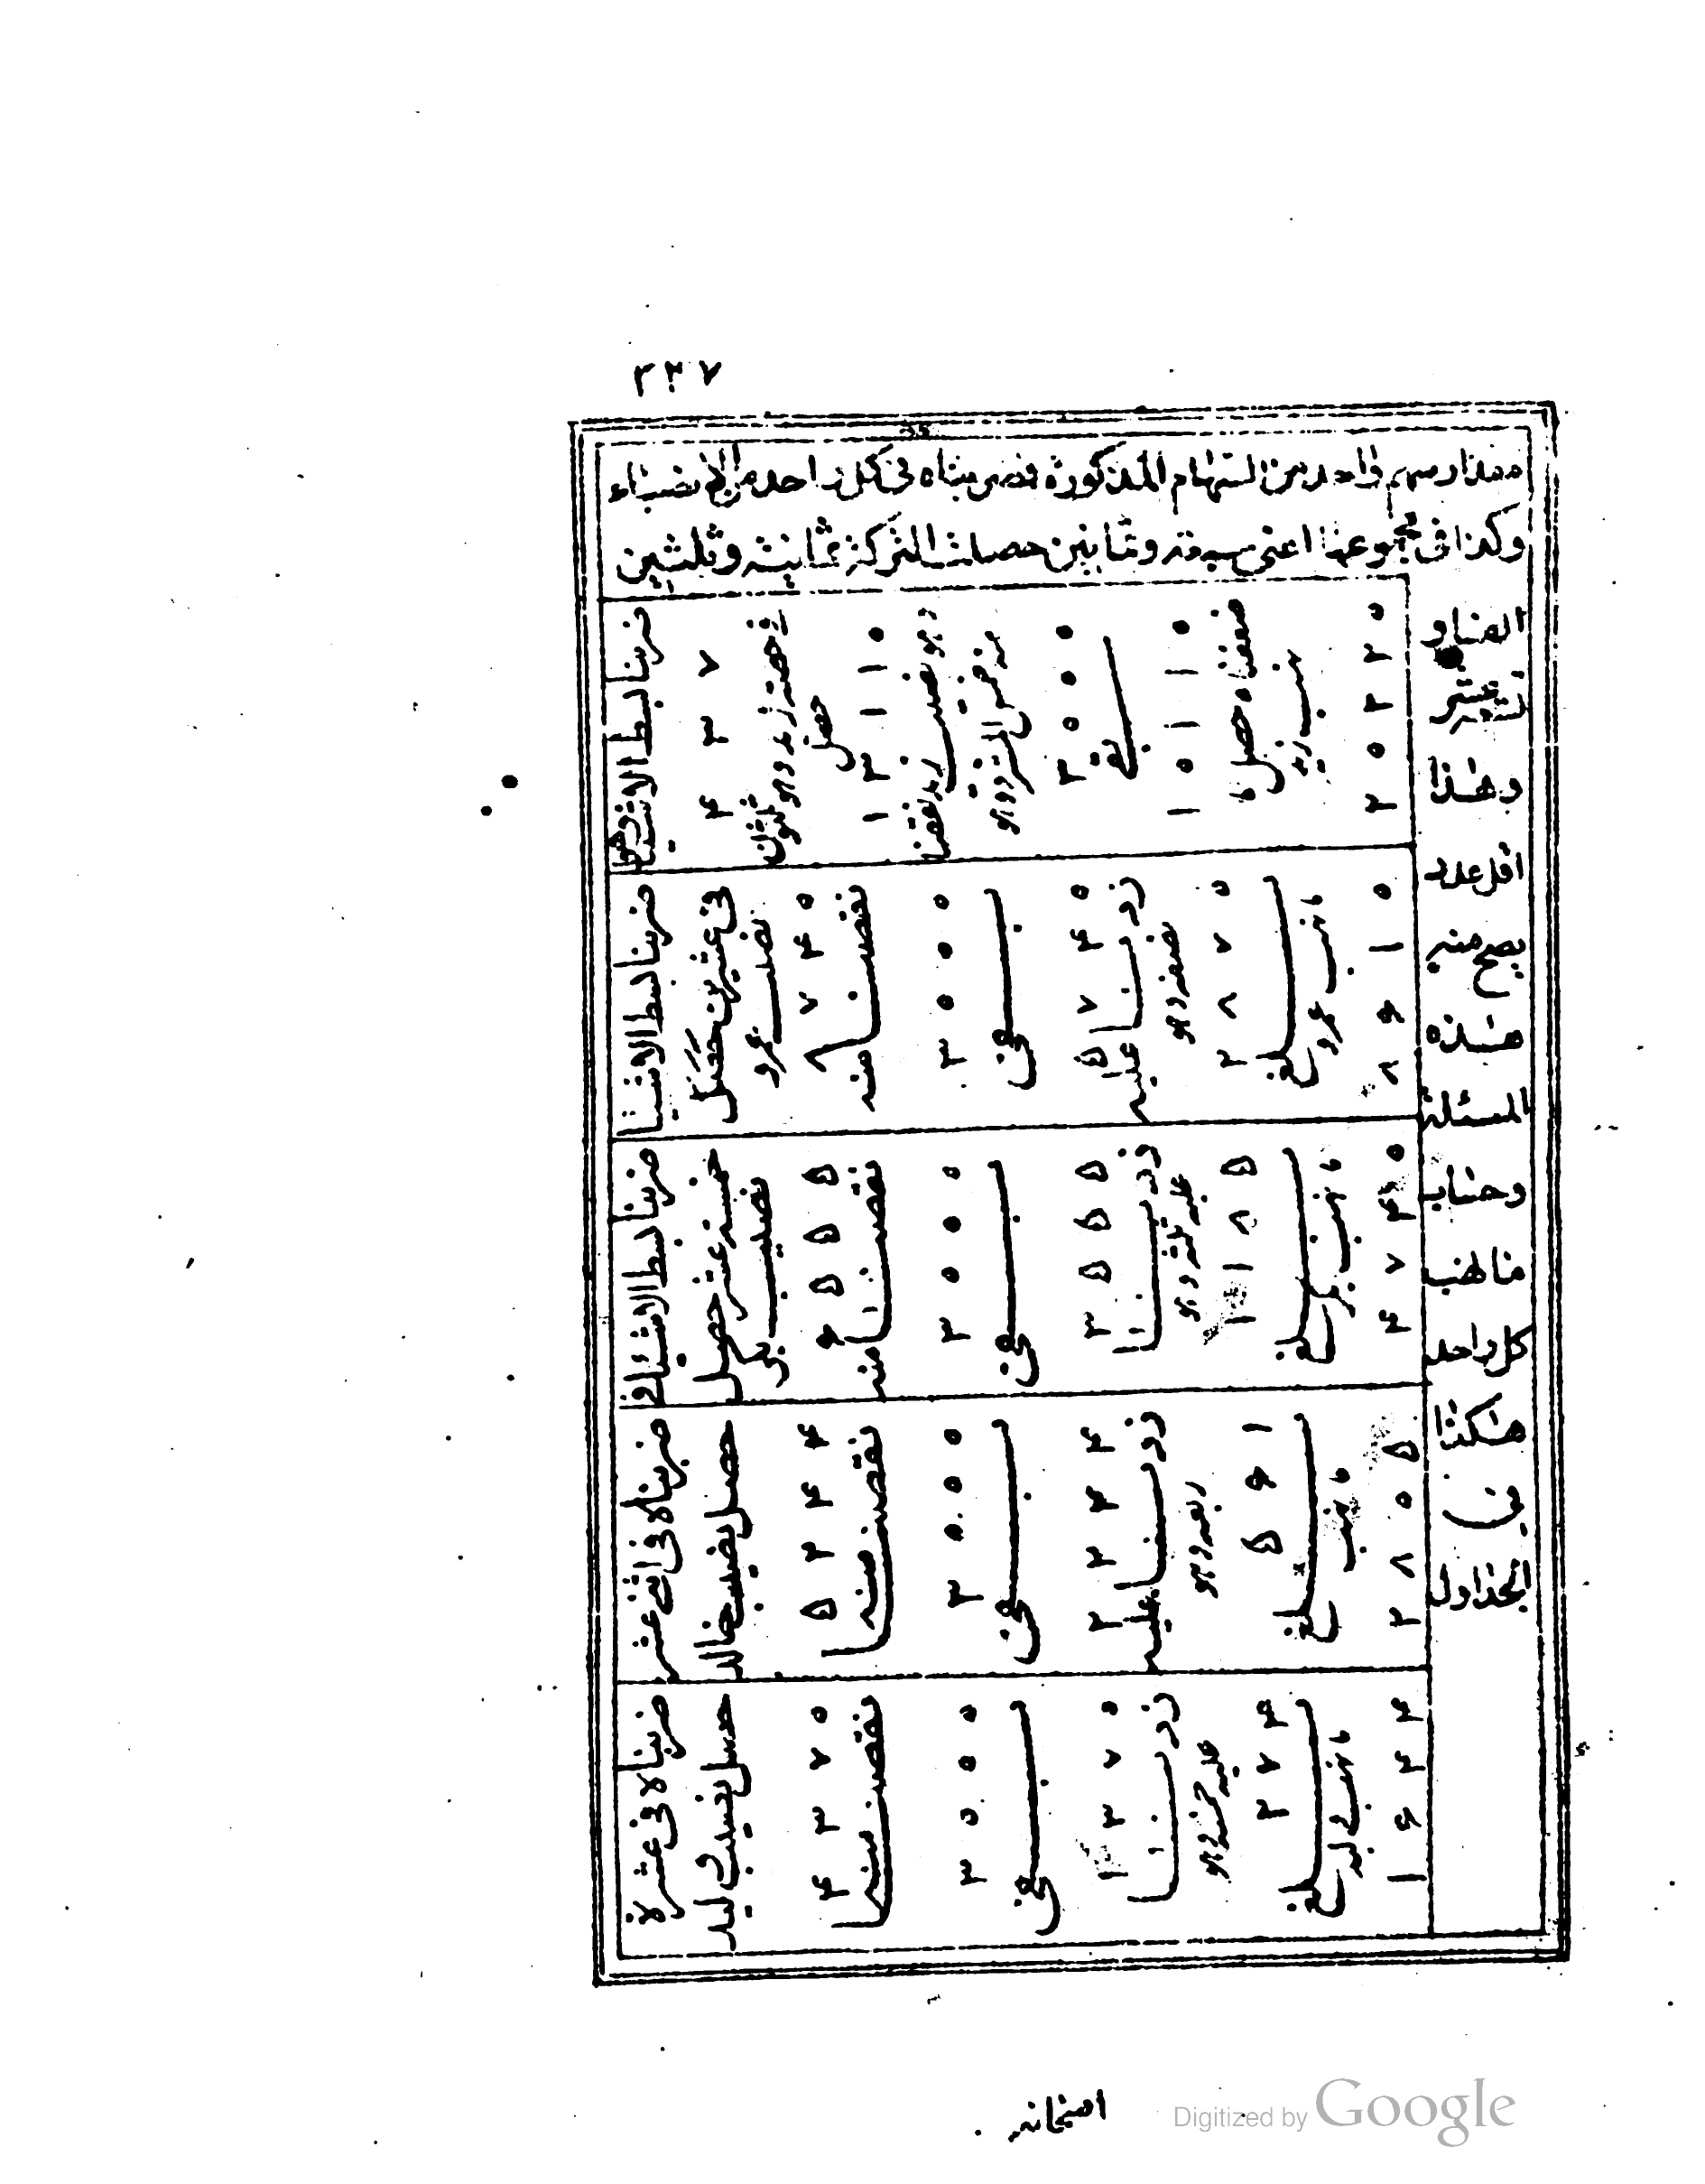 ۳۳۷
مقدار سهم واحد من السهام المذكورة فضربناه في كل واحد من الانصباء
وكذا في مجموعها اعني سبعة وثمانين حصلت التركة ثمانية وثلثين
الفا و
تسعة عشر
وهذا
اقل عدد
يصح منه
هذه
المسئلة
وحساب
ما نهب
كل واحد
هكذا
في
الجداول
ضربنا بسط الاشياء وهو
۴ ۳ ۷
في حصة زيد وهو ثلثون
حصل
۱ ۳ ۱ ۱ ۰
وهو نصيب زيد نقصنا
منه خمس المسترد وهو
۳ ۰ ۰ ۰
بقي
۱ ۰ ۱ ۱ ۰
ضعفناه حصل ما
نهب زيد
۲ ۰ ۲ ۲ ۰
ضربنا بسط الاشيا
في عشرين حصل
نصيب عمرو
۸ ۷ ۴ ۰
نقصنا منه
۳ ۰ ۰ ۰
بقي
۵ ۷ ۴ ۰
زدنا عليه
نصفه وهو
۲ ۸ ۷ ۰
بلغ
ما نهب عمرو
۸ ۶ ۱ ۰
ضربنا بسط الاشيا في
خمسة عشر حصل
نصيب بكر
۶ ۵ ۵ ۵
نقصنا منه
۳ ۰ ۰ ۰
بقي
۳ ۵ ۵ ۵
زدنا
عليه ثلثه وهو
۱ ۱ ۸ ۵
بلغ
ما نهب بكر
۴ ۷ ۴ ۰
ضربناه في اثني عشر
حصل نصيب خالد
۵ ۲ ۴ ۴
نقصنا منه
۳ ۰ ۰ ۰
بقي
۲ ۲ ۴ ۴
زدنا عليه
ربعه وهو
۵ ۶ ۱
بلغ
ما نهب
۲ ۸ ۰ ۵
ضربناه في عشرة
حصل نصيب وليد
۴ ۳ ۷ ۰
نقصنا منه
۳ ۰ ۰ ۰
بقي
۱ ۳ ۷ ۰
زدنا
عليه خمسه وهو
۲ ۷ ۴
بلغ
ما نهب وليد
۱ ۶ ۴ ۴
امتحانه
Digitized by Google